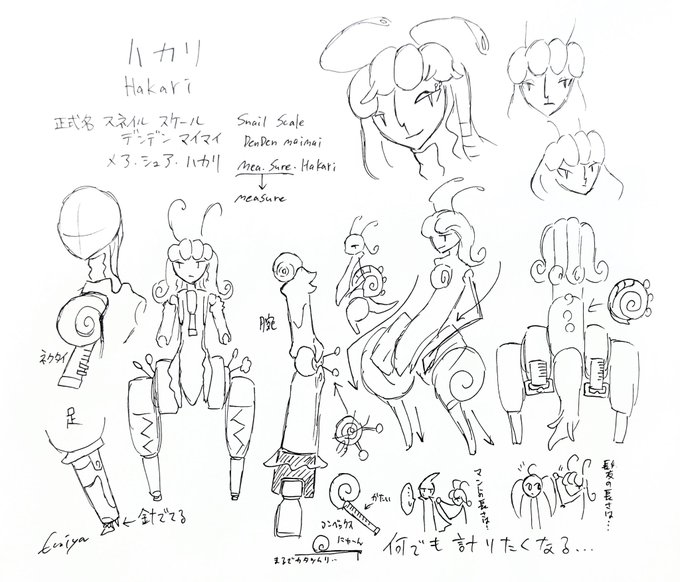 ハカリ
Hakari
正式名 スネイル スケール
デンデン マイマイ
メア・シュア・ハカリ
Snail Scale
DenDen maimai
Mea. Sure. Hakari
measure
ネクタイ
足
針でてる
腕
かたい
コンベックス
にゅ〜ん
まるでカタツムリ…
マントの長さは…
髪の長さは…
何でも計りたくなる…